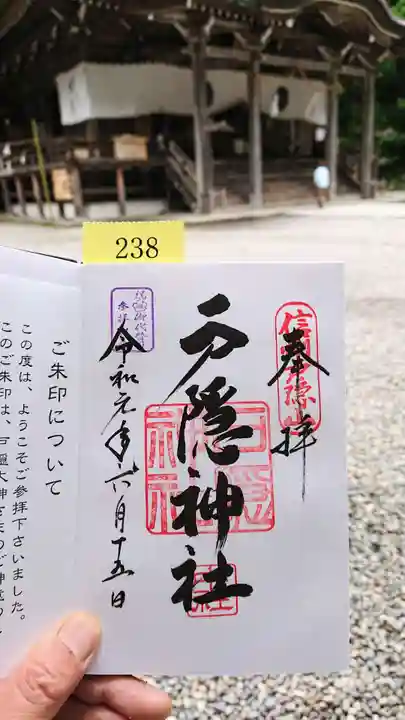 238
奉拝
戸隠神社
令和元年六月十五日
参拝
ご朱印について
この度は、ようこそご参拝下さいました。
このご朱印は、戸隠大神さまのご神徳の